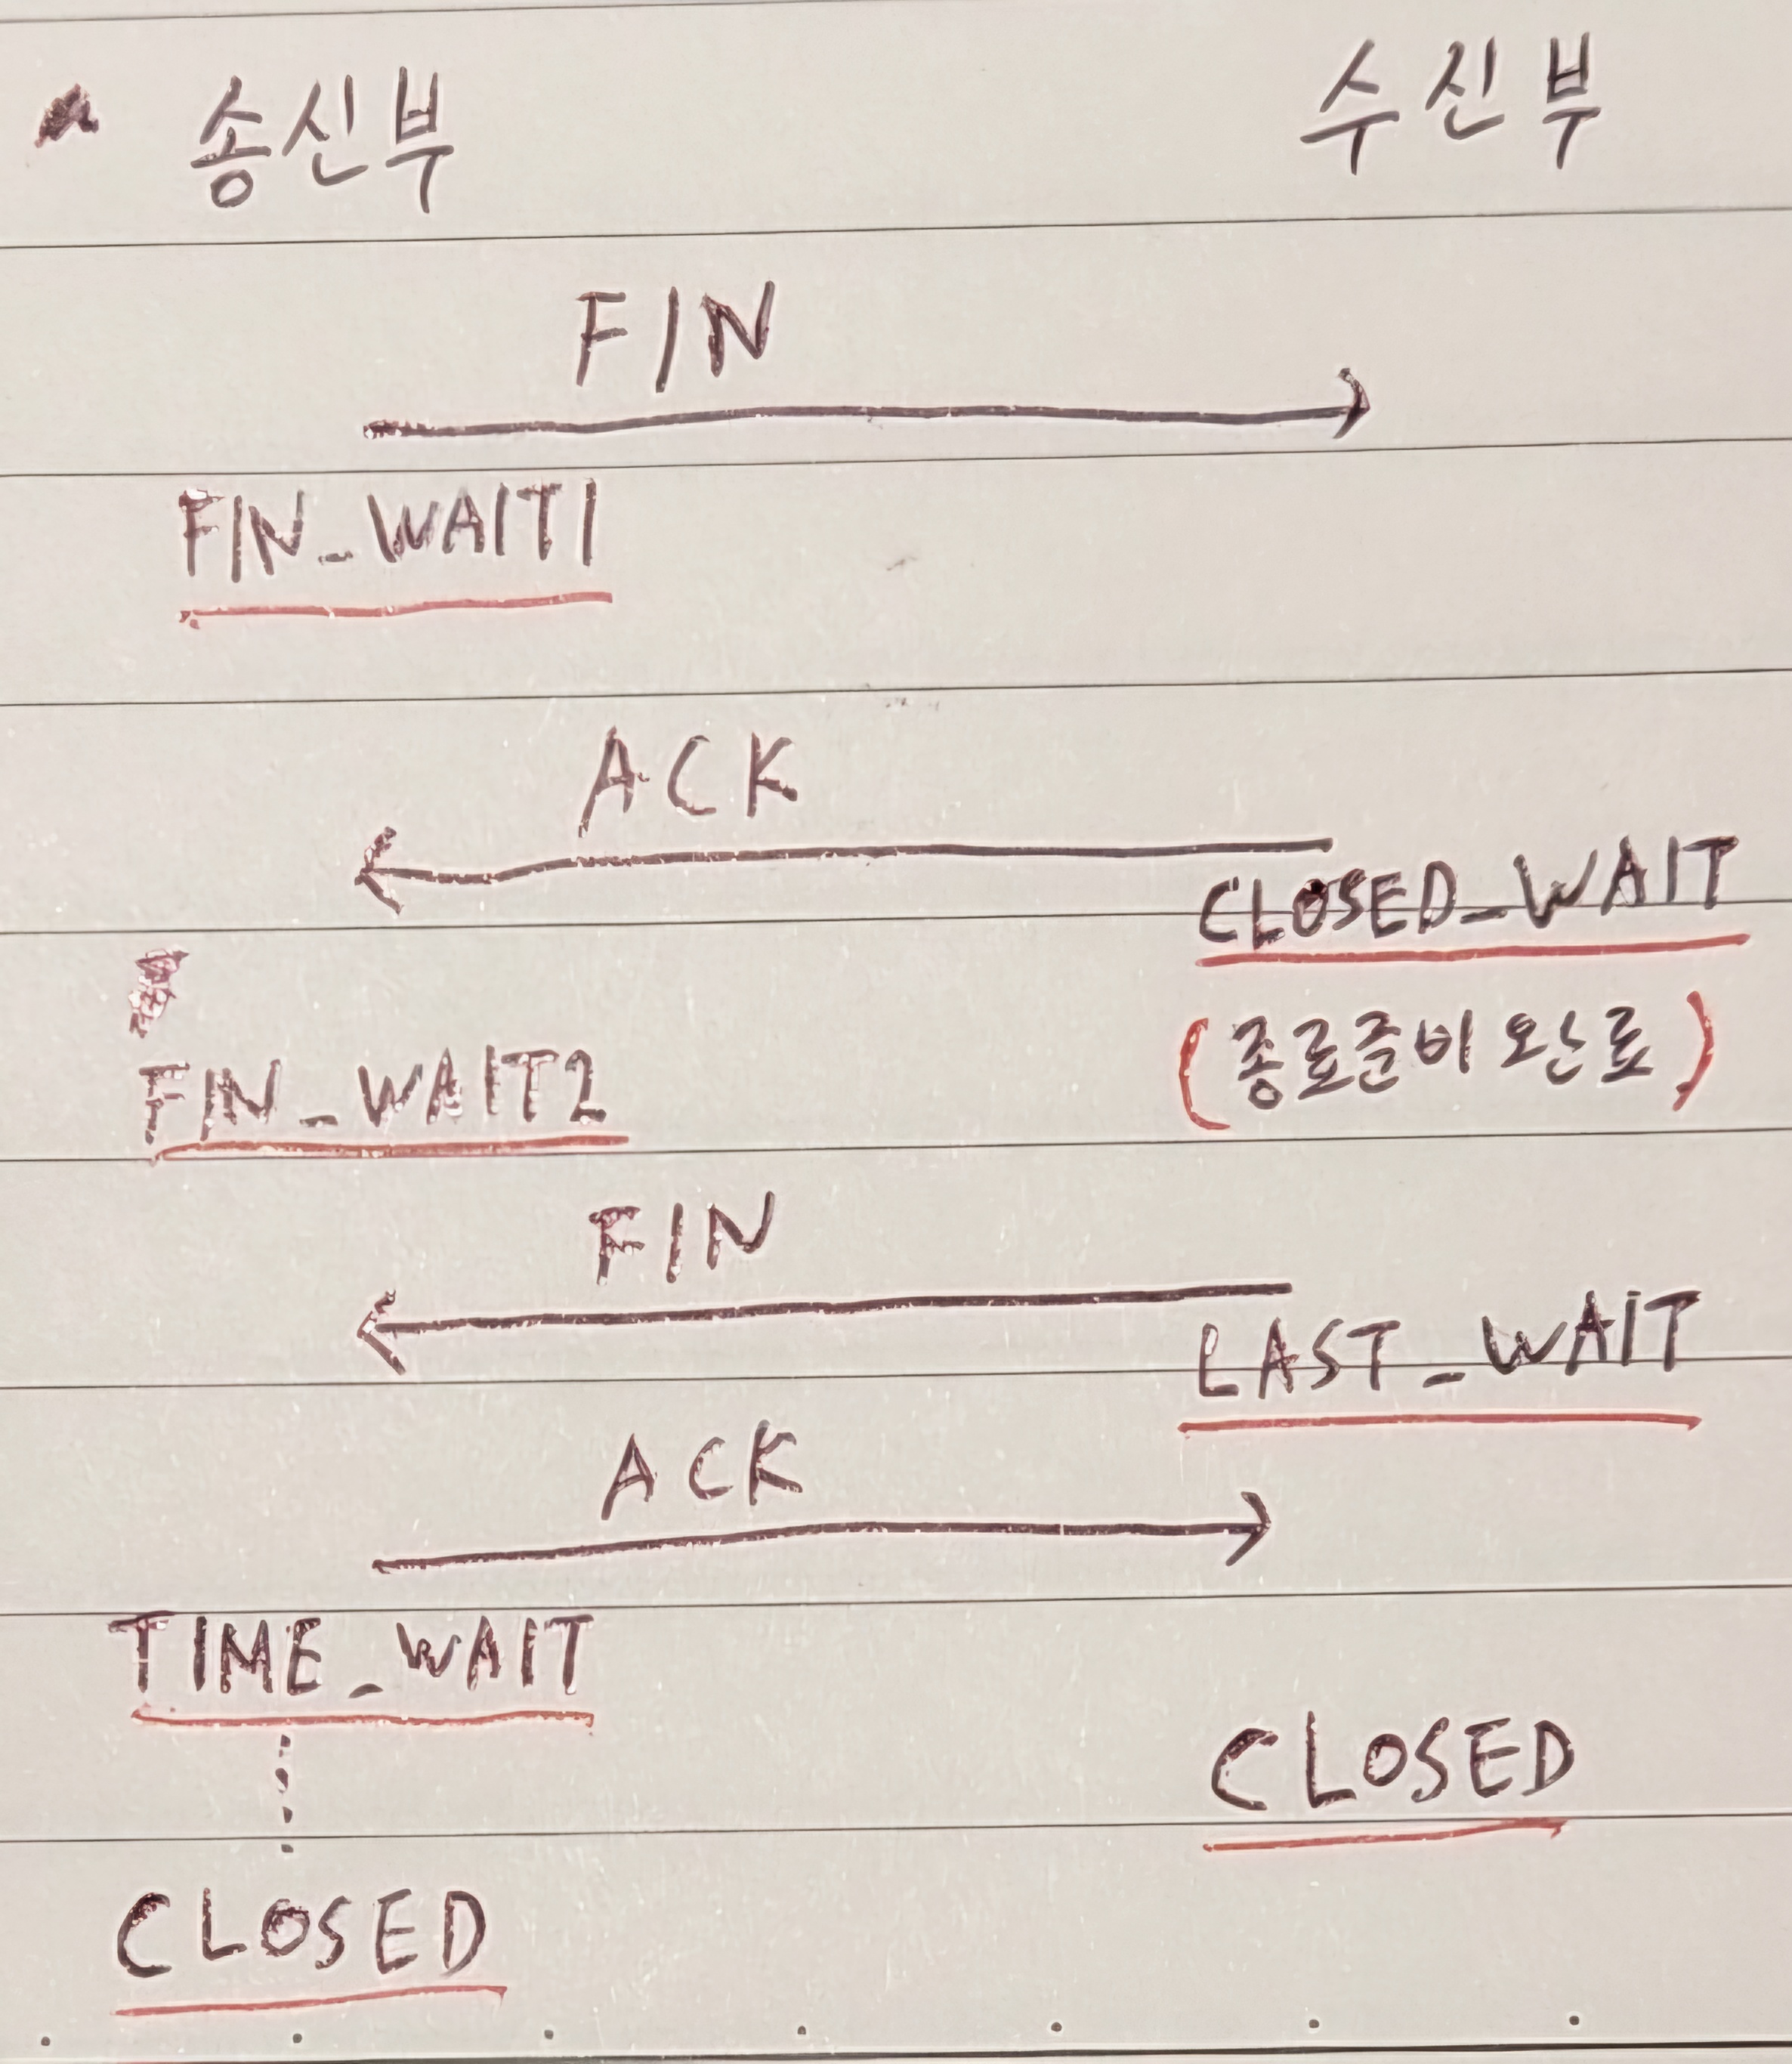 송신부 수신부
FIN
FIN_WAIT1
ACK
CLOSED_WAIT
(종료준비 완료)
FIN_WAIT2
FIN
LAST_WAIT
ACK
TIME_WAIT
CLOSED
CLOSED